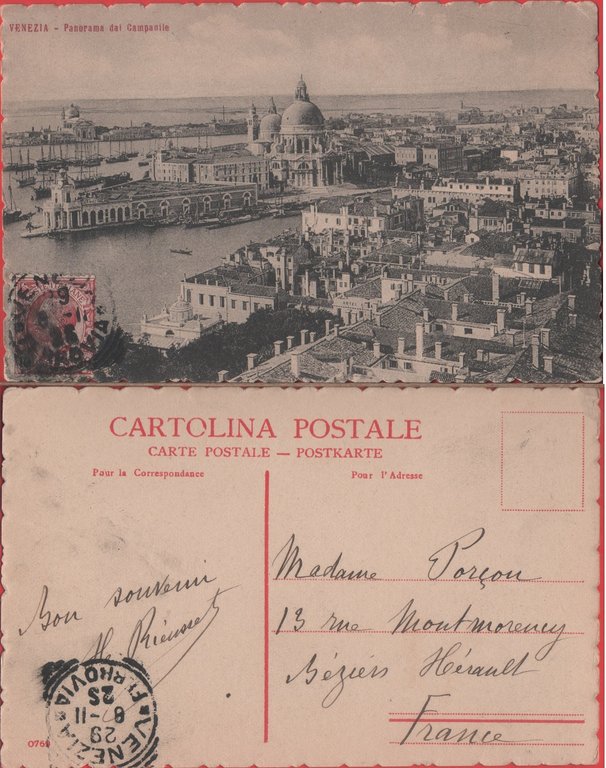 VENEZIA - Panorama dal Campanile
CARTOLINA POSTALE
CARTE POSTALE — POSTKARTE
Pour la Correspondance
Pour l'Adresse
Bon souvenir
Madame Porçon
13 rue Montmorency
Béziers Hérault
France
VENEZIA
FERROVIA
29
8-11
2S
0769